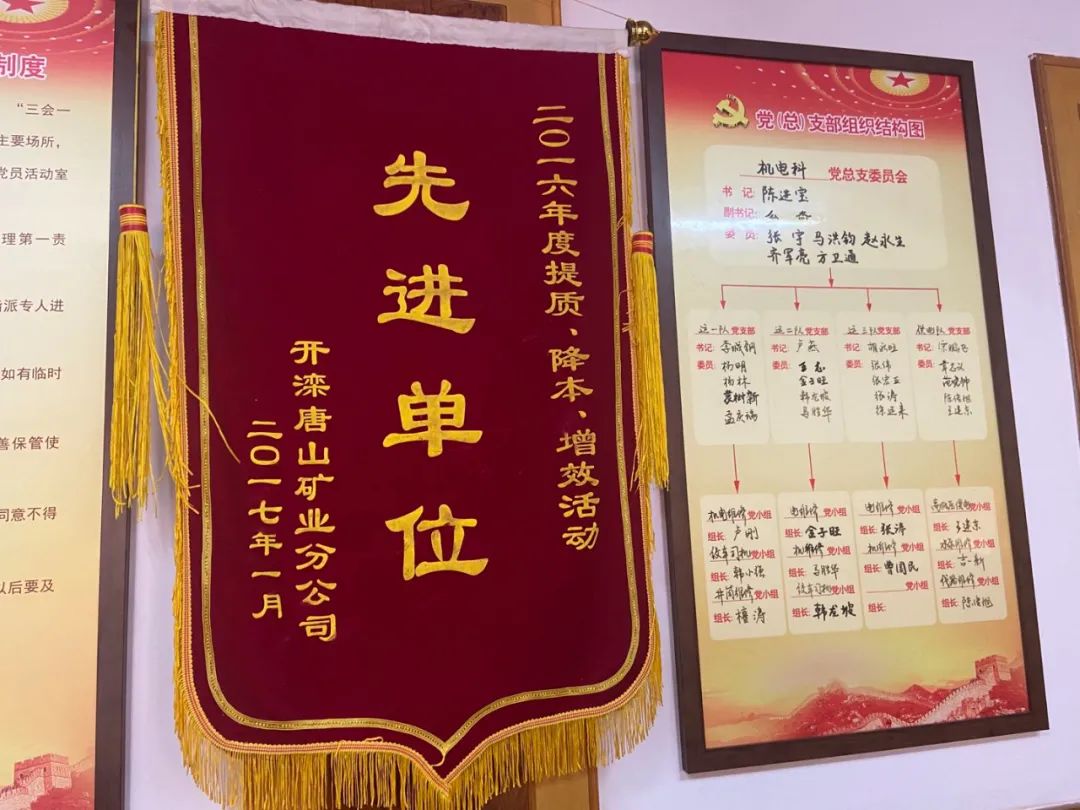 制度
“三会一
主要场所，
党员活动室
理第一责
派专人进
如有临时
善保管使
同意不得
以后要及
二〇一六年度提质、降本、增效活动
先进单位
开滦唐山矿业分公司
二〇一七年一月
党（总）支部组织结构图
机电科 党总支委员会
书 记: 陈进宝
副书记:
委 员: 张宇 马洪钧 赵永生
齐军亮 方卫通
运一队党支部
书记: 李城钢
委员: 杨明
杨林
孟庆瑞
运二队党支部
书记: 卢燕
委员:
金子旺
韩龙坡
马胜华
运三队党支部
书记: 胡永旺
委员: 张伟
张宏亚
张涛
徐进来
供电队党支部
书记:
委员:
王建京
机电维修党小组
组长: 卢刚
绞车司机党小组
组长: 韩小强
井筒维修党小组
组长: 檀涛
电维修党小组
组长: 金子旺
机维修党小组
组长: 马胜华
绞车司机党小组
组长: 韩龙坡
电维修党小组
组长: 张涛
机维修党小组
组长: 曹国民
党小组
组长:
党小组
组长: 王建京
党小组
组长:
党小组
组长: